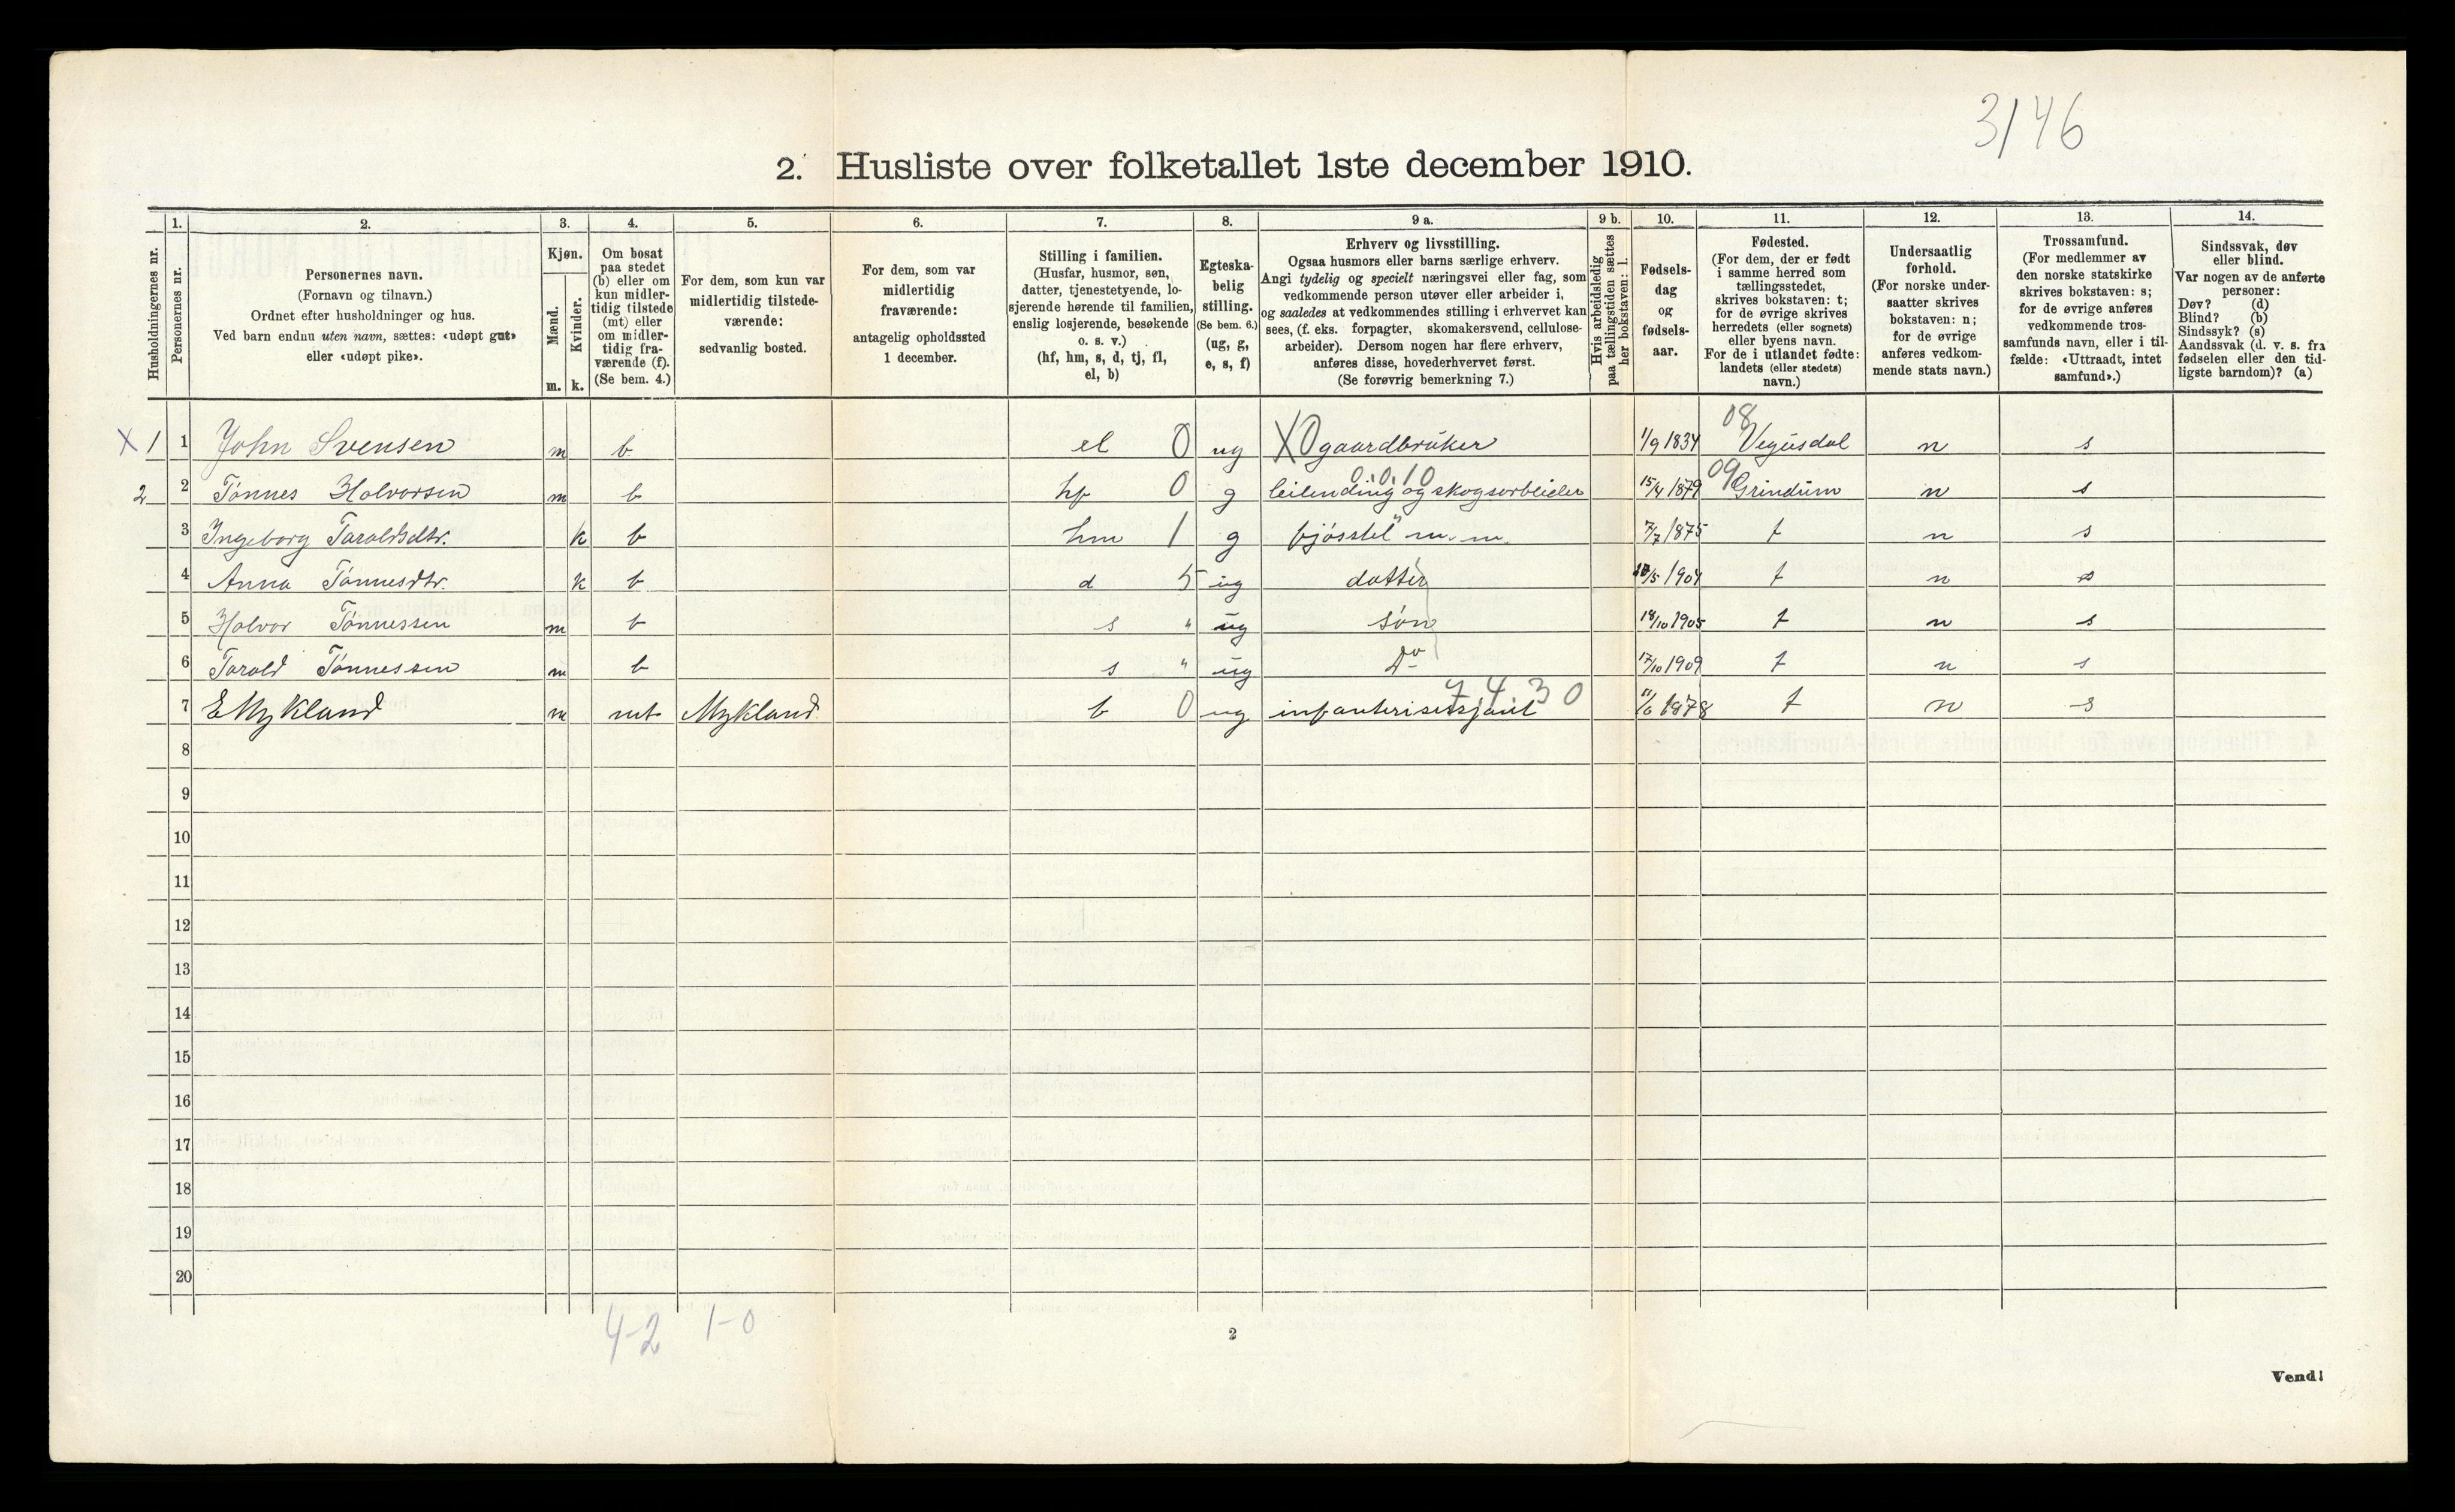 3/46
2. Husliste over folketallet 1ste december 1910.
Husholdningernes nr.
1. Personernes nr.
2. Personernes navn.
(Fornavn og tilnavn.)
Ordnet efter husholdninger og hus.
Ved barn endnu uten navn, sættes: «udøpt gut»
eller «udøpt pike».
3. Kjøn.
Mænd. m.
Kvinder. k.
4. Om bosat
paa stedet
(b) eller om
kun midler-
tidig tilstede
(mt) eller
om midler-
tidig fra-
værende (f).
(Se bem. 4.)
5. For dem, som kun var
midlertidig tilstede-
værende:
sedvanlig bosted.
6. For dem, som var
midlertidig
fraværende:
antagelig opholdssted
1 december.
7. Stilling i familien.
(Husfar, husmor, søn,
datter, tjenestetyende, lo-
sjerende hørende til familien,
enslig losjerende, besøkende
o. s. v.)
(hf, hm, s, d, tj, fl,
el, b)
8. Egteska-
belig
stilling.
(Se bem. 6.)
(ug, g,
e, s, f)
9 a. Erhverv og livsstilling.
Ogsaa husmors eller barns særlige erhverv.
Angi tydelig og specielt næringsvei eller fag, som
vedkommende person utøver eller arbeider i,
og saaledes at vedkommendes stilling i erhvervet kan
sees, (f. eks. forpagter, skomakersvend, cellulose-
arbeider). Dersom nogen har flere erhverv,
anføres disse, hovederhvervet først.
(Se forøvrig bemerkning 7.)
9 b. Hvis arbeidsledig
paa tællingstiden sættes
her bokstaven: l.
10. Fødsels-
dag
og
fødsels-
aar.
11. Fødested.
(For dem, der er født
i samme herred som
tællingsstedet,
skrives bokstaven: t;
for de øvrige skrives
herredets (eller sognets)
eller byens navn.
For de i utlandet fødte:
landets (eller stedets)
navn.)
12. Undersaatlig
forhold.
(For norske under-
saatter skrives
bokstaven: n;
for de øvrige
anføres vedkom-
mende stats navn.)
13. Trossamfund.
(For medlemmer av
den norske statskirke
skrives bokstaven: s;
for de øvrige anføres
vedkommende tros-
samfunds navn, eller i til-
fælde: «Uttraadt, intet
samfund».)
14. Sindssvak, døv
eller blind.
Var nogen av de anførte
personer:
Døv? (d)
Blind? (b)
Sindssyk? (s)
Aandssvak (d. v. s. fra
fødselen eller den tid-
ligste barndom)? (a)
X 1 1 John Svensen m b el 0 ug X0 gaardbruker 1/9 1834 08 Vegusdal n s
2 2 Tønnes Halvorsen m b hf 0 g 0.0.10 leilending og skogsarbleider 15/4 1879 09 Grindum n s
3 Ingeborg Taraldsdtr. k b hm 1 g fjøsstel m. m. 7/7 1875 t n s
4 Anna Tønnesdtr. k b d 5 ug datter /5 1904 t n s
5 Halvor Tønnessen m b s " ug søn 18/10 1905 t n s
6 Tarald Tønnessen m b s " ug Do 17/10 1909 t n s
7 E Mykland m mt Mykland b 0 ug 7.4.30 infanterisersjant 11/6 1878 t n s
8
9
10
11
12
13
14
15
16
17
18
19
20
4-2 1-0
2
Vend!